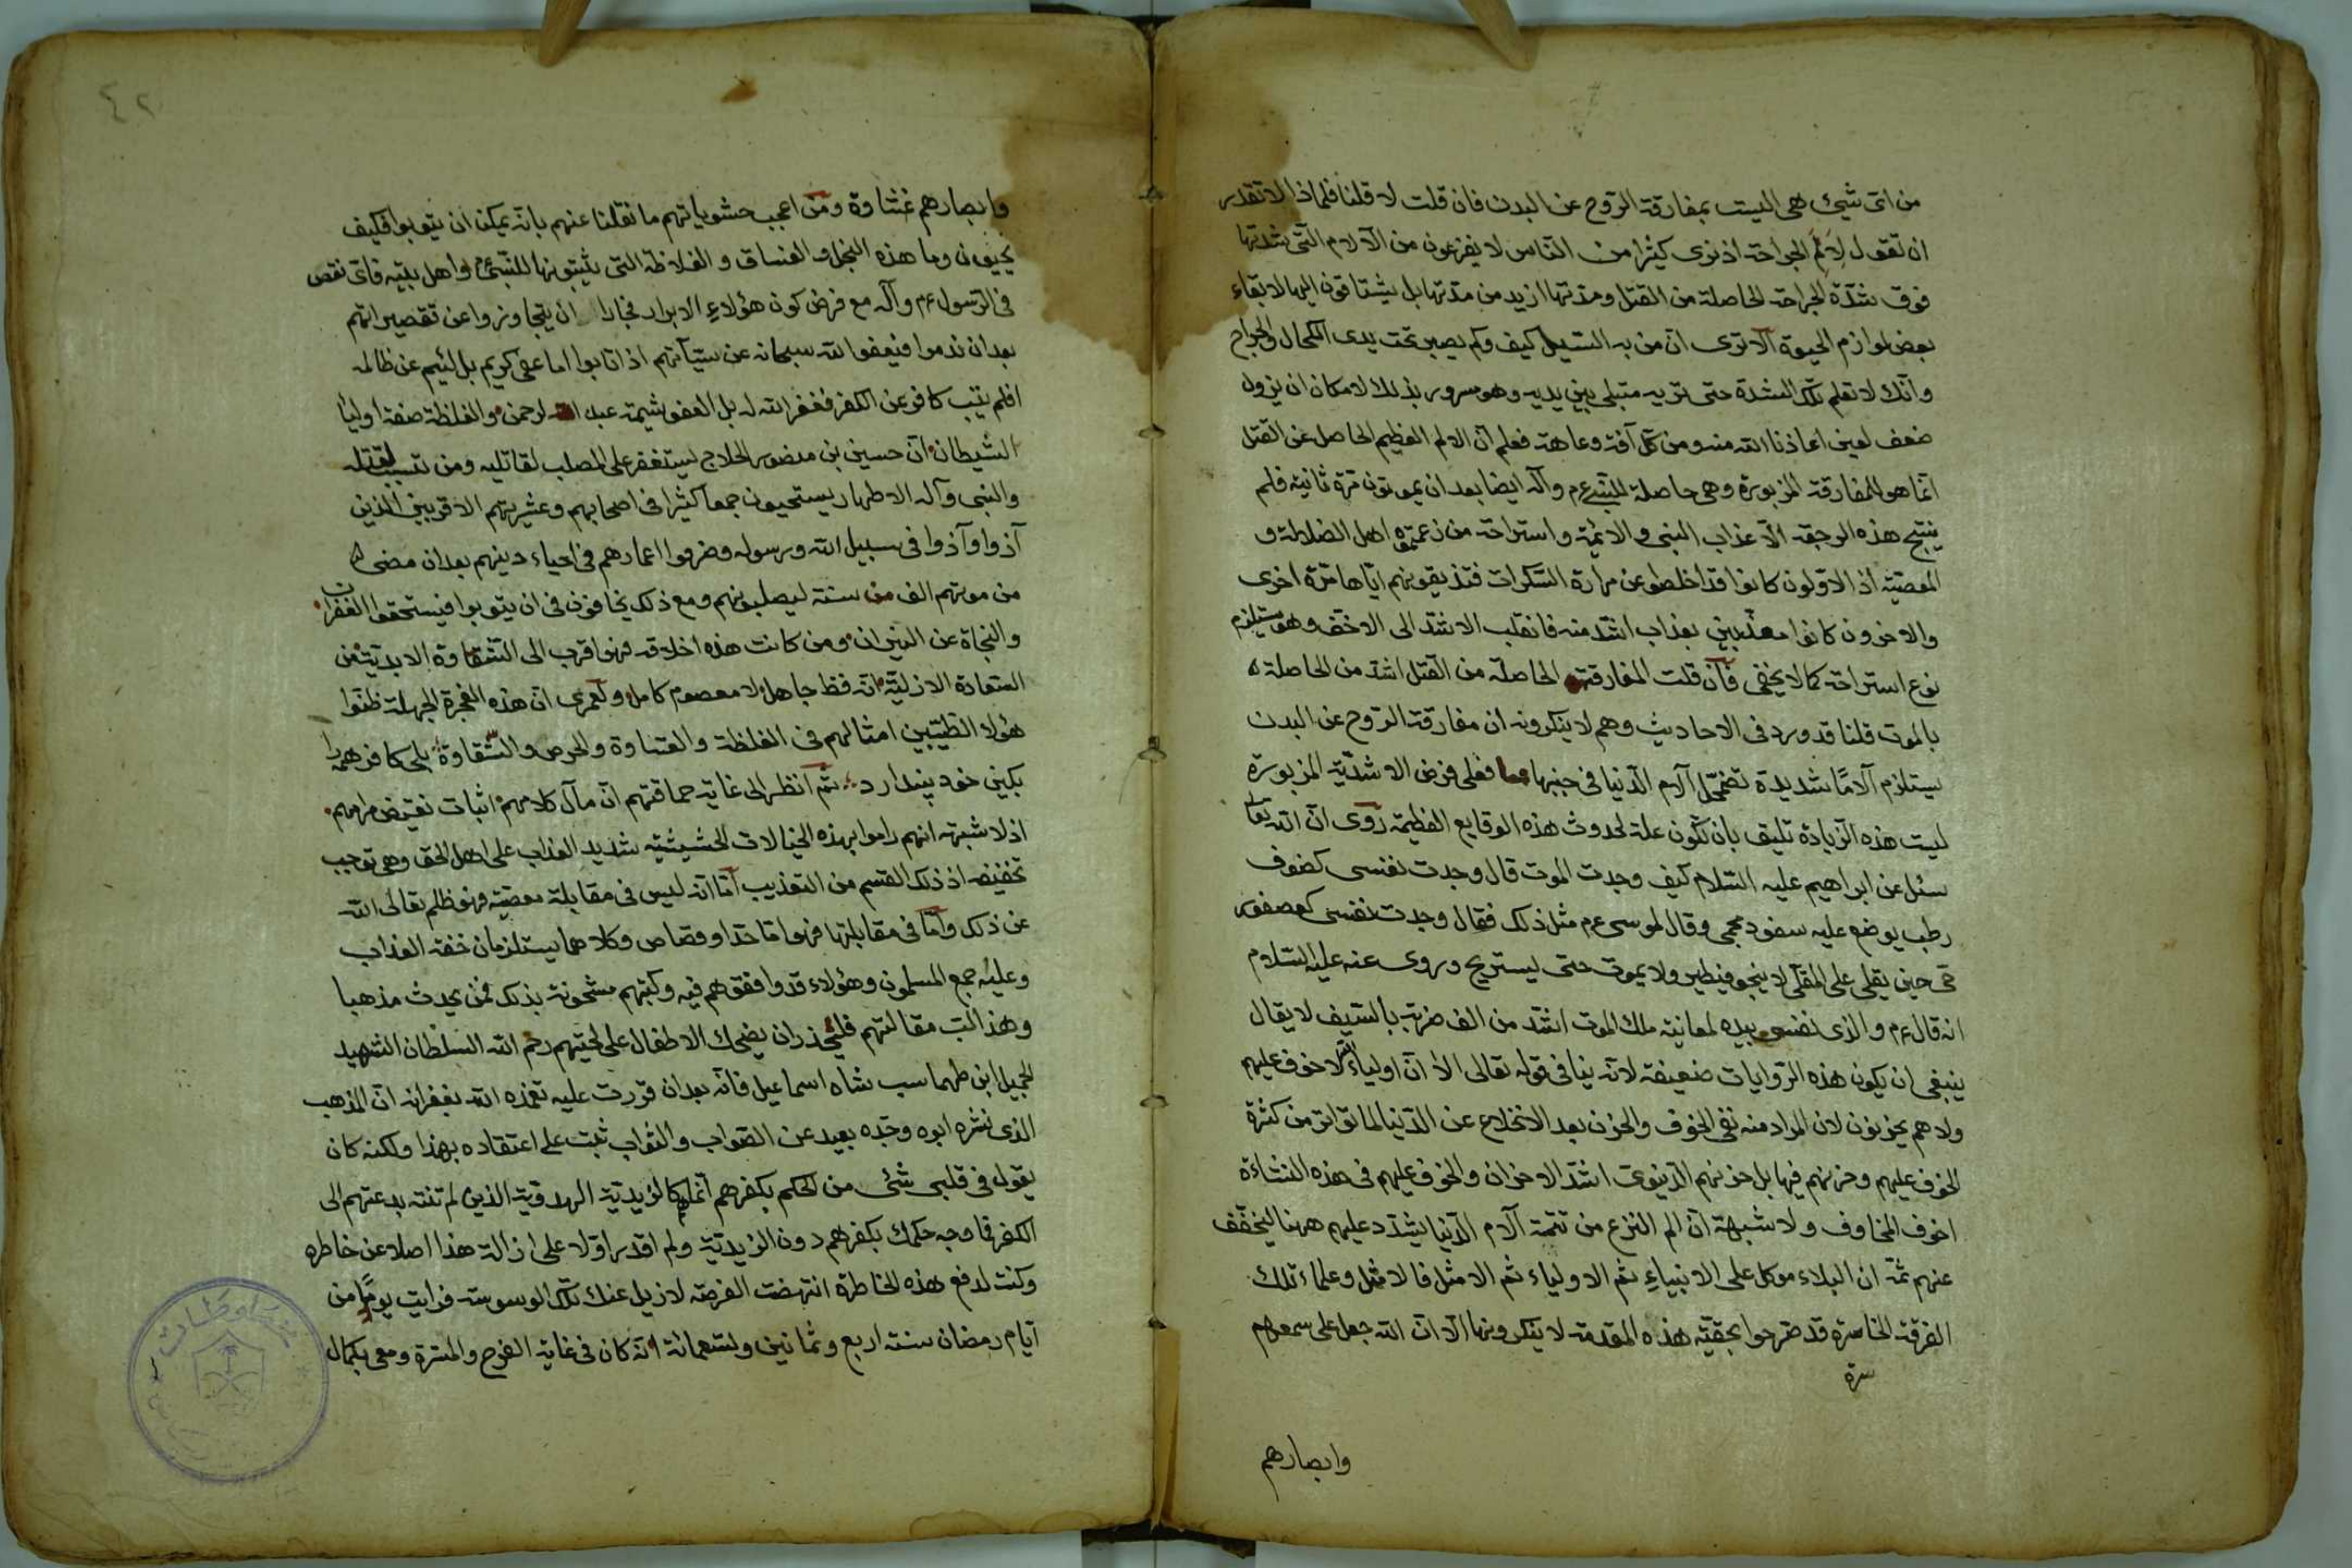 من اى شيئ هى اليست بمفارقة الروح عن البدن فان قلت لا قلنا فلماذا لا تقدر
ان تقول لالم الجراحة اذ نرى كثيرا من الناس لا يفزعون من الآلام التى شدتها
فوق شدة الجراحة الحاصلة من القتل ومدتها ازيد من مدتها بل يشتاقون اليها لابقاء
بعض لوازم الحيوة الا ترى ان من به السبل كيف وكم يصبر تحت يدى الكحال والجراح
وانك لا تعلم تلك الشدة حتى تريه مبتلى بين يديه وهو مسرور بذلك لامكان ان يزول
ضعف لعين اعاذنا الله منه ومن كل آفة وعاهة فعلم ان الالم العظيم الحاصل عن القتل
انما هو المفارقة المزبورة وهى حاصلة للنبى عم وآله ايضا بعد ان يموتون مرة ثانية فلم
ينتج هذه الرجعة الا عذاب النبى والائمة واستراحة من زعمتموه اهل الضلالة و
المعصية اذ الاولون كانوا قد اخلصوا عن مرارة السكرات فتذيقونهم اياها مرة اخرى
والاخرون كانوا معذبين بعذاب اشد منه فانقلب الاشد الى الاخف وهو يستلزم
نوع استراحة كما لا يخفى فان قلت المفارقة الحاصلة من القتل اشد من الحاصلة
بالموت قلنا قد ورد فى الاحاديث وهم لا ينكرونه ان مفارقة الروح عن البدن
يستلزم آلاما شديدة تضمحل آلام الدنيا فى جنبها فعلى فرض الاشدية المزبورة
ليست هذه الزيادة تليق بان تكون علة لحدوث هذه الوقايع العظيمة روى ان الله تعا
سئل عن ابراهيم عليه السلام كيف وجدت الموت قال وجدت نفسى كصوف
رطب يوضع عليه سفود محمى وقال لموسى عم مثل ذلك فقال وجدت نفسى كعصفور
حى حين يقلى على المقلى لا ينجو فيطير ولا يموت حتى ليستريح وروى عنه عليه السلام
انه قال عم والذى نفسى بيده لمعاينة ملك الموت اشد من الف ضربة بالسيف لا يقال
ينبغى ان يكون هذه الروايات ضعيفة لانه ينافى قوله تعالى الا ان اولياء الله لا خوف عليهم
ولا هم يحزنون لان المراد منه نفى الخوف والحزن بعد الانخلاع عن الدنيا لما تواتر من كثرة
الخوف عليهم وحزنهم فيها بل حزنهم الدنيوى اشد الاحزان والخوف عليهم فى هذه النشاءة
اخوف المخاوف ولا شبهة ان الم النزع من تتمة آلام الدنيا يشدد عليهم ههنا ليخفف
عنهم ثمة ان البلاء موكل على الانبياء ثم الاولياء ثم الامثل فالامثل وعلماء تلك
الفرقة الخاسرة قد صرحوا بحقية هذه المقدمة لا ينكرونها الا ان الله جعل على سمعهم
وابصارهم
٤٢
وابصارهم غشاوة ومن اعجب حشوياتهم ما نقلنا عنهم بانه يمكن ان يتوبوا فكيف
يحيون وما هذه البخل والقساق والغلاظة التى يثبتونها للنبى عم واهل بيته فاى نقص
فى الرسول عم وآله مع فرض كون هؤلاء الابرار فجارا ان يتجاوزوا عن تقصيراتهم
بعد ان ندموا فيعفوا الله سبحانه عن سيآتهم اذ تابوا اما عفى كريم بل لئيم عن ظالمه
افلم يتب كافر عن الكفر فغفر الله له بل العفو شيمة عباد الرحمن والغلظة صفة اوليا
الشيطان ان حسين بن منصور الحلاج ليستغفر على المصلب لقاتليه ومن تسبب لقتله
والنبى وآله الاطهار يستحيون جمعا كثيرا فى اصحابهم وعشيرتهم الاقربين الذين
آذوا وآذوا فى سبيل الله ورسوله وصرفوا اعمارهم فى احياء دينهم بعد ان مضى
من موتهم الف من سنة ليصلبونهم ومع ذلك يخافون فى ان يتوبوا فيستحقوا الغفران
والنجاة عن النيران ومن كانت هذه اخلاقه فهو اقرب الى الشقاوة الابدية من
السعادة الازلية انه فظ جاهل لا معصوم كامل ولعمرى ان هذه الفجرة الجهلة ظنوا
هؤلاء الطيبين امثالهم فى الغلظة والقساوة والحرص والشقاوة بلى كافر همه را
بكيش خود پندارد ثم انظر الى غاية حماقتهم ان مآل كلامهم اثبات نقيض مرامهم
اذ لا شبهة انهم راموا بهذه الخيالات الحشيشية شديد العذاب على اهل الحق وهى توجب
تخفيفه اذ ذلك القسم من التعذيب اما انه ليس فى مقابلة معصية فهو ظلم تعالى الله
عن ذلك واما فى مقابلتها فهو اما حد او قصاص وكلاهما يستلزمان خفة العذاب
وعليه جمع المسلمون وهؤلاء قد وافقوهم فيه وكتبهم مشحونة بذلك فمن يحدث مذهبا
وهذا لب مقالتهم فليحذر ان يضحك الاطفال على لحيتهم رحم الله السلطان الشهيد
الجميل ابن طهماسب شاه اسماعيل فانه بعد ان قررت عليه تغمده الله بغفرانه ان المذهب
الذى نشره ابوه وجده بعيد عن الصواب والثواب ثبت على اعتقاده بهذا ولكنه كان
يقول فى قلبى شئ من الحكم بكفرهم انما هم كالزيدية الذين لم تنته بدعتهم الى
الكفر فما وجه حكمك بكفرهم دون الزيدية ولم اقدر اولا على ازالة هذا اصلا عن خاطره
وكنت لدفع هذه الخاطرة انتهضت الفرصة لازيل عنك تلك الوسوسة فرايت يوما من
ايام رمضان سنة اربع وثمانين وتسعمائة انه كان فى غاية الفرح والمسرة ومعى بكمال